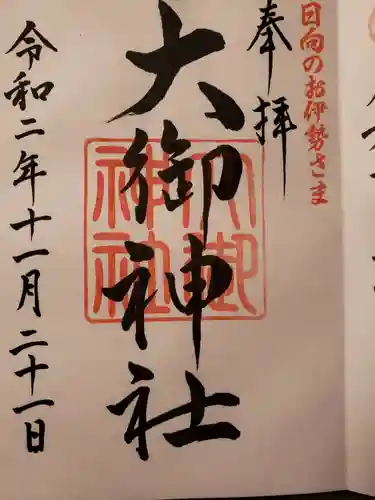 日向のお伊勢さま
奉拝
大御神社
大御神社
令和二年十一月二十一日